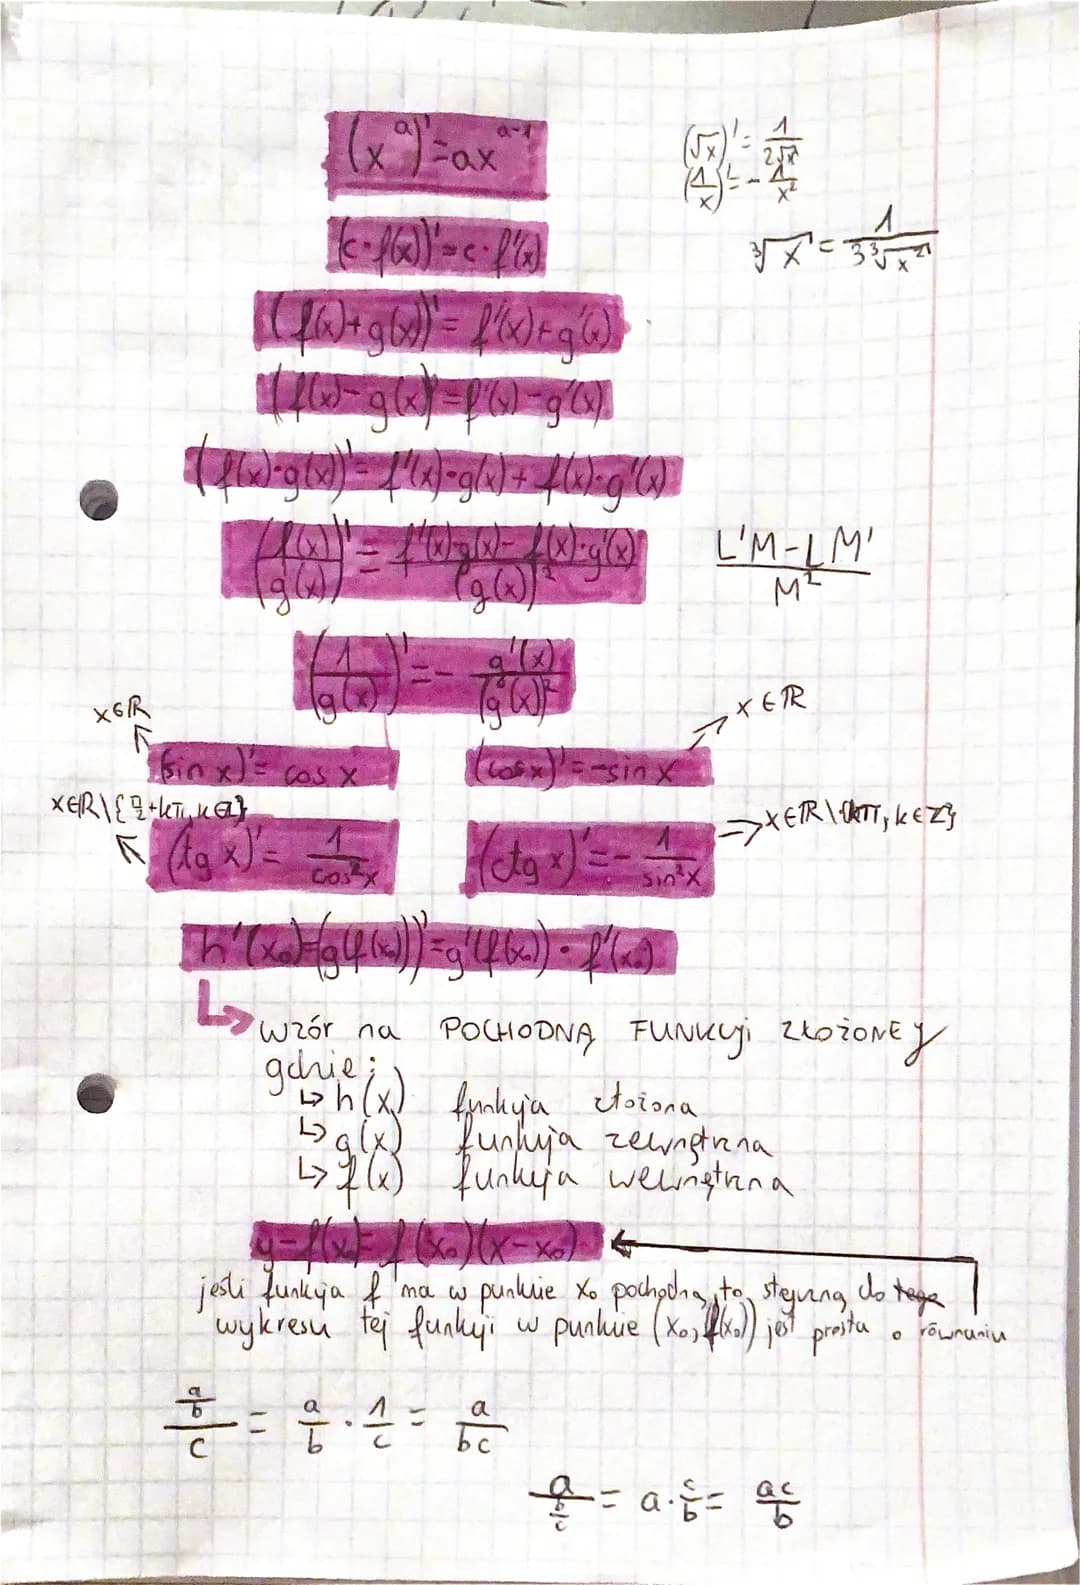 (x^a)' = ax^(a-1)
(√x)' = 1/(2√x)
(1/x)' = -1/x²
(c·f(x))' = c·f'(x)
∛x' = 1/(3∛x²)
(f(x)+g(x))' = f'(x)+g'(x)
(f(x)-g(x))' = f'(x)-g'(x)
(f(x)·g(x))' = f'(x)·g(x)+f(x)·g'(x)
(f(x)/g(x))' = (f'(x)·g(x)-f(x)·g'(x))/(g(x))²
(L'M-LM')/M²
(1/g(x))' = -g'(x)/(g(x))²
x∈ℝ
x∈ℝ
(sin x)' = cos x
(cos x)' = -sin x
x∈ℝ\{π/2+kπ, k∈ℤ}
x∈ℝ\{kπ, k∈ℤ}
(tg x)' = 1/cos²x
(ctg x)' = -1/sin²x
h'(x₀)=(g(f(x₀)))'=g'(f(x₀))·f'(x₀)
↳ wzór na POCHODNĄ FUNKcji ZŁOŻONEJ
gdzie:
↳ h(x) funkcja złożona
↳ g(x) funkcja zewnętrzna
↳ f(x) funkcja wewnętrzna
y-f(x₀)=f'(x₀)(x-x₀)
jeśli funkcja f ma w punkcie x₀ pochodną, to styczną do tego
wykresu tej funkcji w punkcie (x₀, f(x₀)) jest prosta o równaniu
(a/b)/c = a/b · 1/c = a/bc
a/(b/c) = a·c/b = ac/b